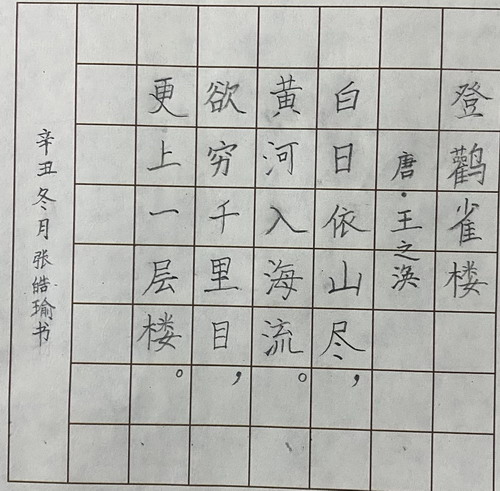 登鹳雀楼
唐·王之涣
白日依山尽，
黄河入海流。
欲穷千里目，
更上一层楼。
辛丑冬月张皓瑜书